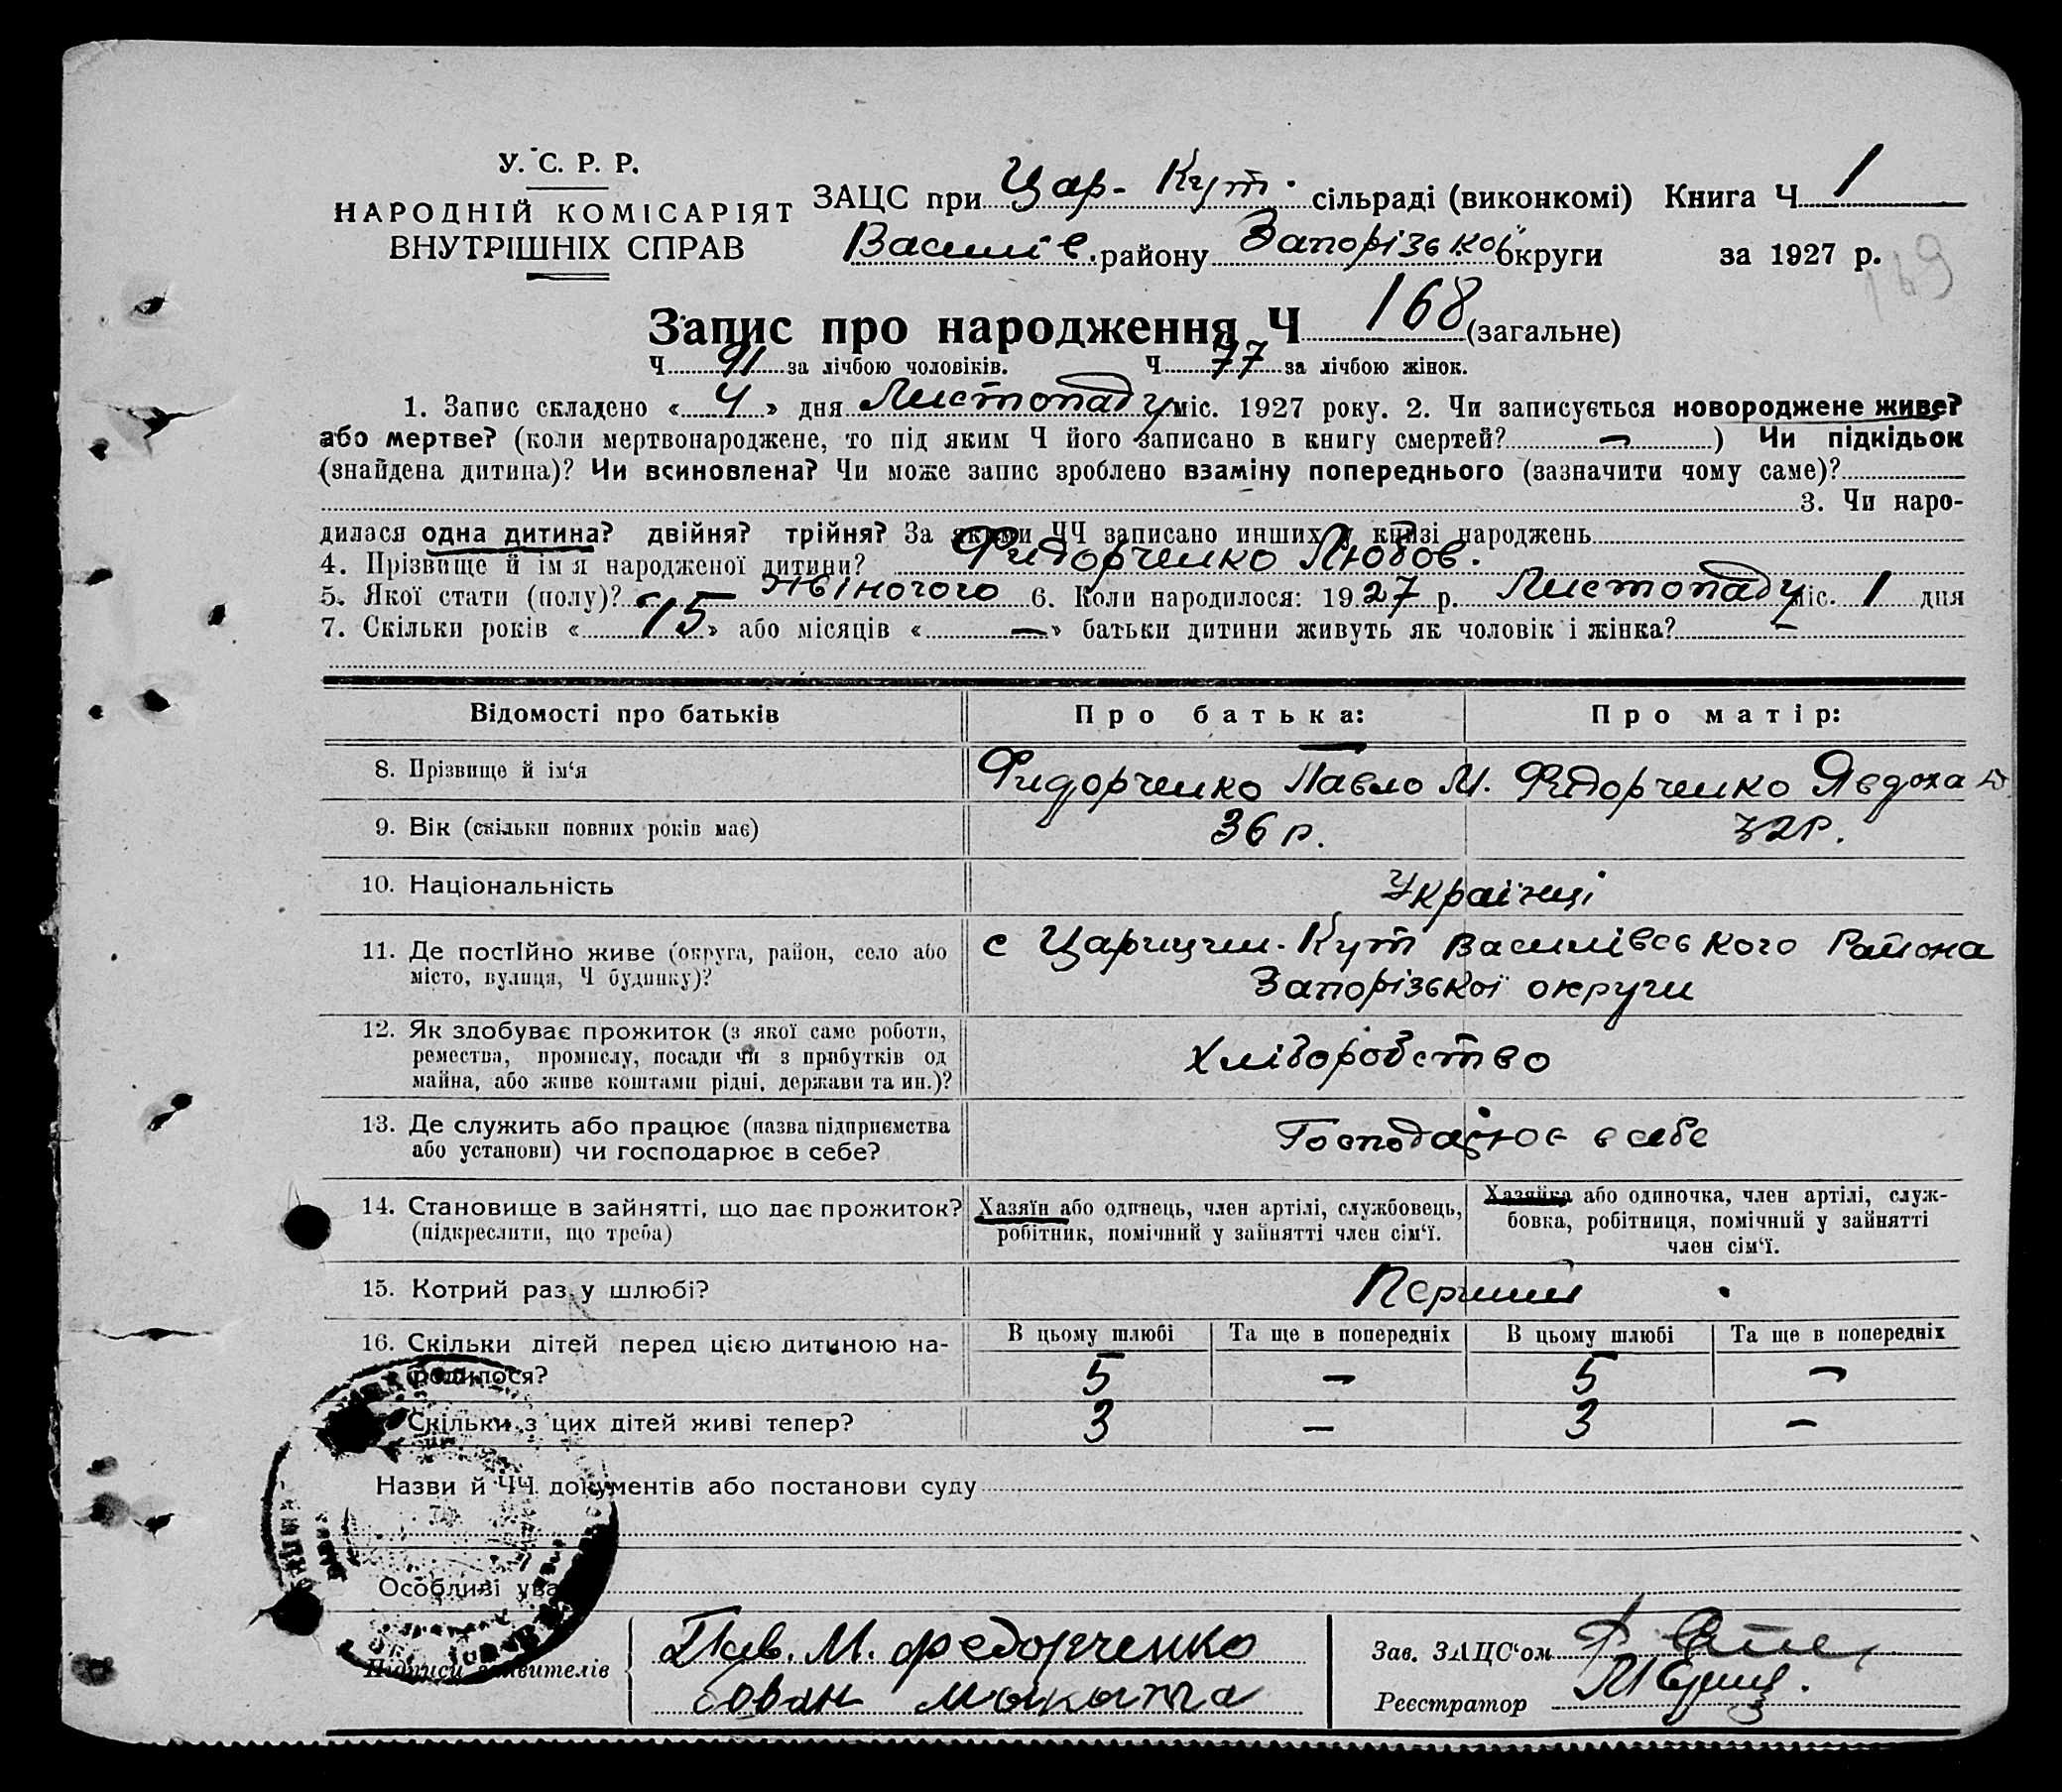 У. С. Р. Р.
НАРОДНІЙ КОМІСАРІЯТ
ВНУТРІШНІХ СПРАВ
ЗАЦС при Цар-Кут. сільраді (виконкомі) Книга Ч 1
Василів. району Запорізької округи за 1927 р.
169
Запис про народження Ч 168 (загальне)
Ч 91 за лічбою чоловіків. Ч 77 за лічбою жінок.
1. Запис складено « 4 » дня Листопаду міс. 1927 року. 2. Чи записується новороджене живе?
або мертве? (коли мертвонароджене, то під яким Ч його записано в книгу смертей? — ) Чи підкідьок
(знайдена дитина)? Чи всиновлена? Чи може запис зроблено взаміну попереднього (зазначити чому саме)?
3. Чи наро-
дилася одна дитина? двійня? трійня? За якими ЧЧ записано инших у книзі народжень
4. Прізвище й ім'я народженої дитини? Фидорченко Любов.
5. Якої стати (полу)? жіночого 6. Коли народилося: 1927 р. Листопаду міс. 1 дня
7. Скільки років « 15 » або місяців « — » батьки дитини живуть як чоловік і жінка? —
Відомості про батьків Про батька: Про матір:
8. Прізвище й ім'я Фидорченко Павло М. Фидорченко Явдоха
9. Вік (скільки повних років має) 36 р. 32 р.
10. Національність Українці
11. Де постійно живе (округа, район, село або місто, вулиця, Ч будинку)?
с Царицин. Кут Василівського Района
Запорізької округи
12. Як здобуває прожиток (з якої саме роботи,
ремества, промислу, посади чи з прибутків од
майна, або живе коштами рідні, держави та ин.)?
Хліборобство
13. Де служить або працює (назва підприємства
або установи) чи господарює в себе?
Господарює в себе
14. Становище в зайнятті, що дає прожиток?
(підкреслити, що треба)
Хазяїн або одинець, член артілі, службовець,
робітник, помічний у зайнятті член сім'ї.
Хазяйка або одиночка, член артілі, служ-
бовка, робітниця, помічний у зайнятті
член сім'ї.
15. Котрий раз у шлюбі? Перший
16. Скільки дітей перед цією дитиною на-
родилося?
В цьому шлюбі Та ще в попередніх В цьому шлюбі Та ще в попередніх
5 — 5 —
Скільки з цих дітей живі тепер? 3 — 3 —
Назви й ЧЧ документів або постанови суду
Особливі ува
Підписи заявителів
Пав. М. Федорченко
Зав. ЗАЦС'ом
Реєстратор